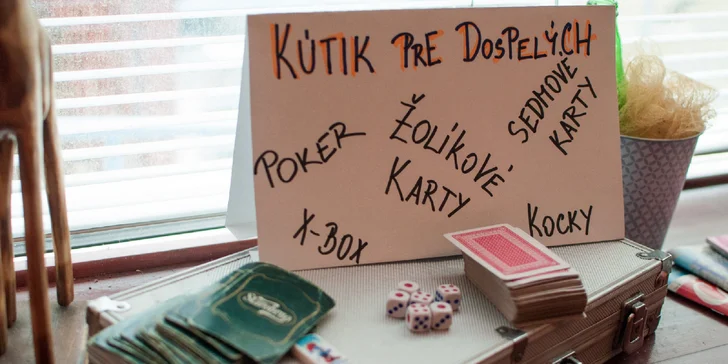 KÚTIK PRE DOSPELÝCH
POKER
ŽOLÍKOVÉ
KARTY
SEDMOVÉ
KARTY
X-BOX
KOCKY